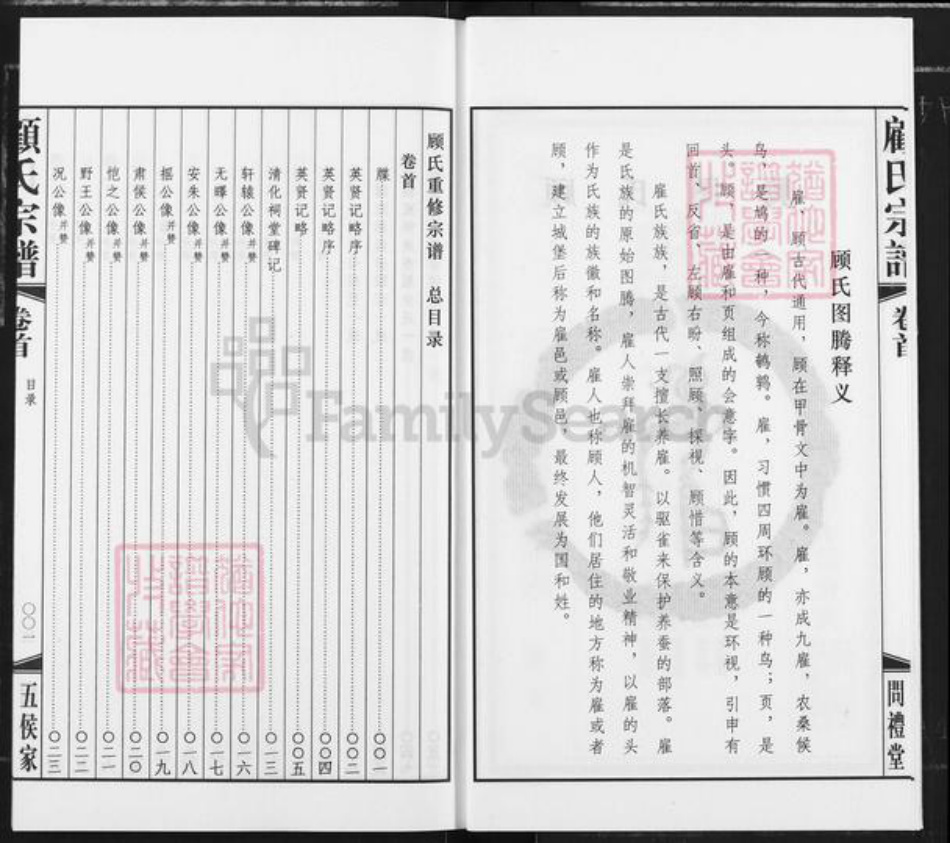 顾氏宗谱
卷首
問禮堂
顾氏图腾释义
雇、顾古代通用，顾在甲骨文中为雇。雇，亦成九雇，农桑候
鸟，是鸠的一种，今称鹌鹑。雇，习惯四周环顾的一种鸟；页，是
头。顾，是由雇和页组成的会意字。因此，顾的本意是环视，引申有
回首、反省、左顾右盼、照顾、探视、顾惜等含义。
雇氏族族，是古代一支擅长养雇。以驱雀来保护养蚕的部落。雇
是氏族的原始图腾，雇人崇拜雇的机智灵活和敬业精神，以雇的头
作为氏族的族徽和名称。雇人也称顾人，他们居住的地方称为雇或者
顾，建立城堡后称为雇邑或顾邑，最终发展为国和姓。
顾氏重修宗谱 总目录
卷首
牒……〇〇一
英贤记略序……〇〇二
英贤记略序……〇〇四
英贤记略……〇〇五
清化祠堂碑记……〇一三
轩辕公像并赞……〇一六
无曎公像并赞……〇一七
安朱公像并赞……〇一八
摇公像并赞……〇一九
肃侯公像并赞……〇二〇
恺之公像并赞……〇二一
野王公像并赞……〇二二
况公像并赞……〇二三
顾氏宗谱
卷首
目录
〇〇一
五侯家
FamilySearch